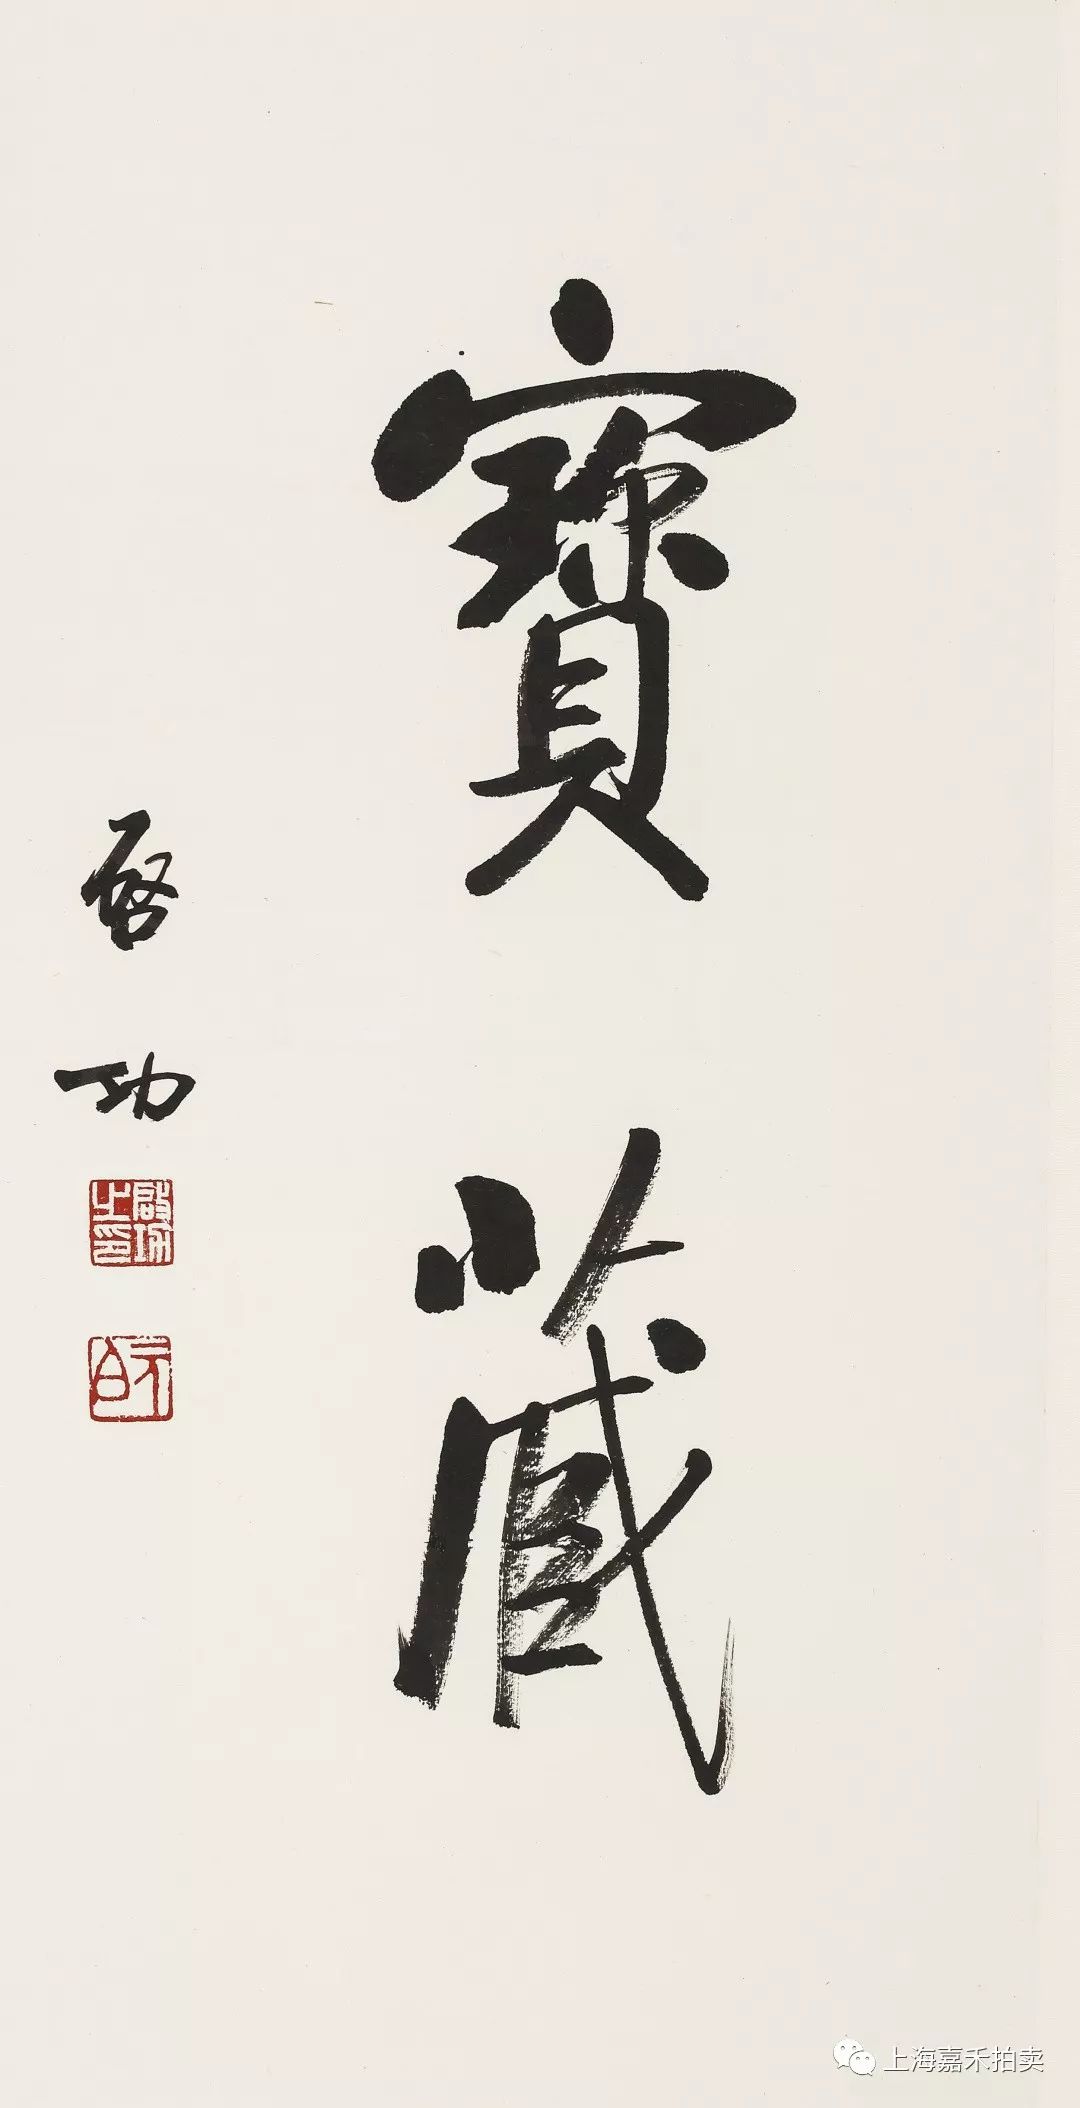 寳藏
啓功
啟功之印
元白
上海嘉禾拍卖